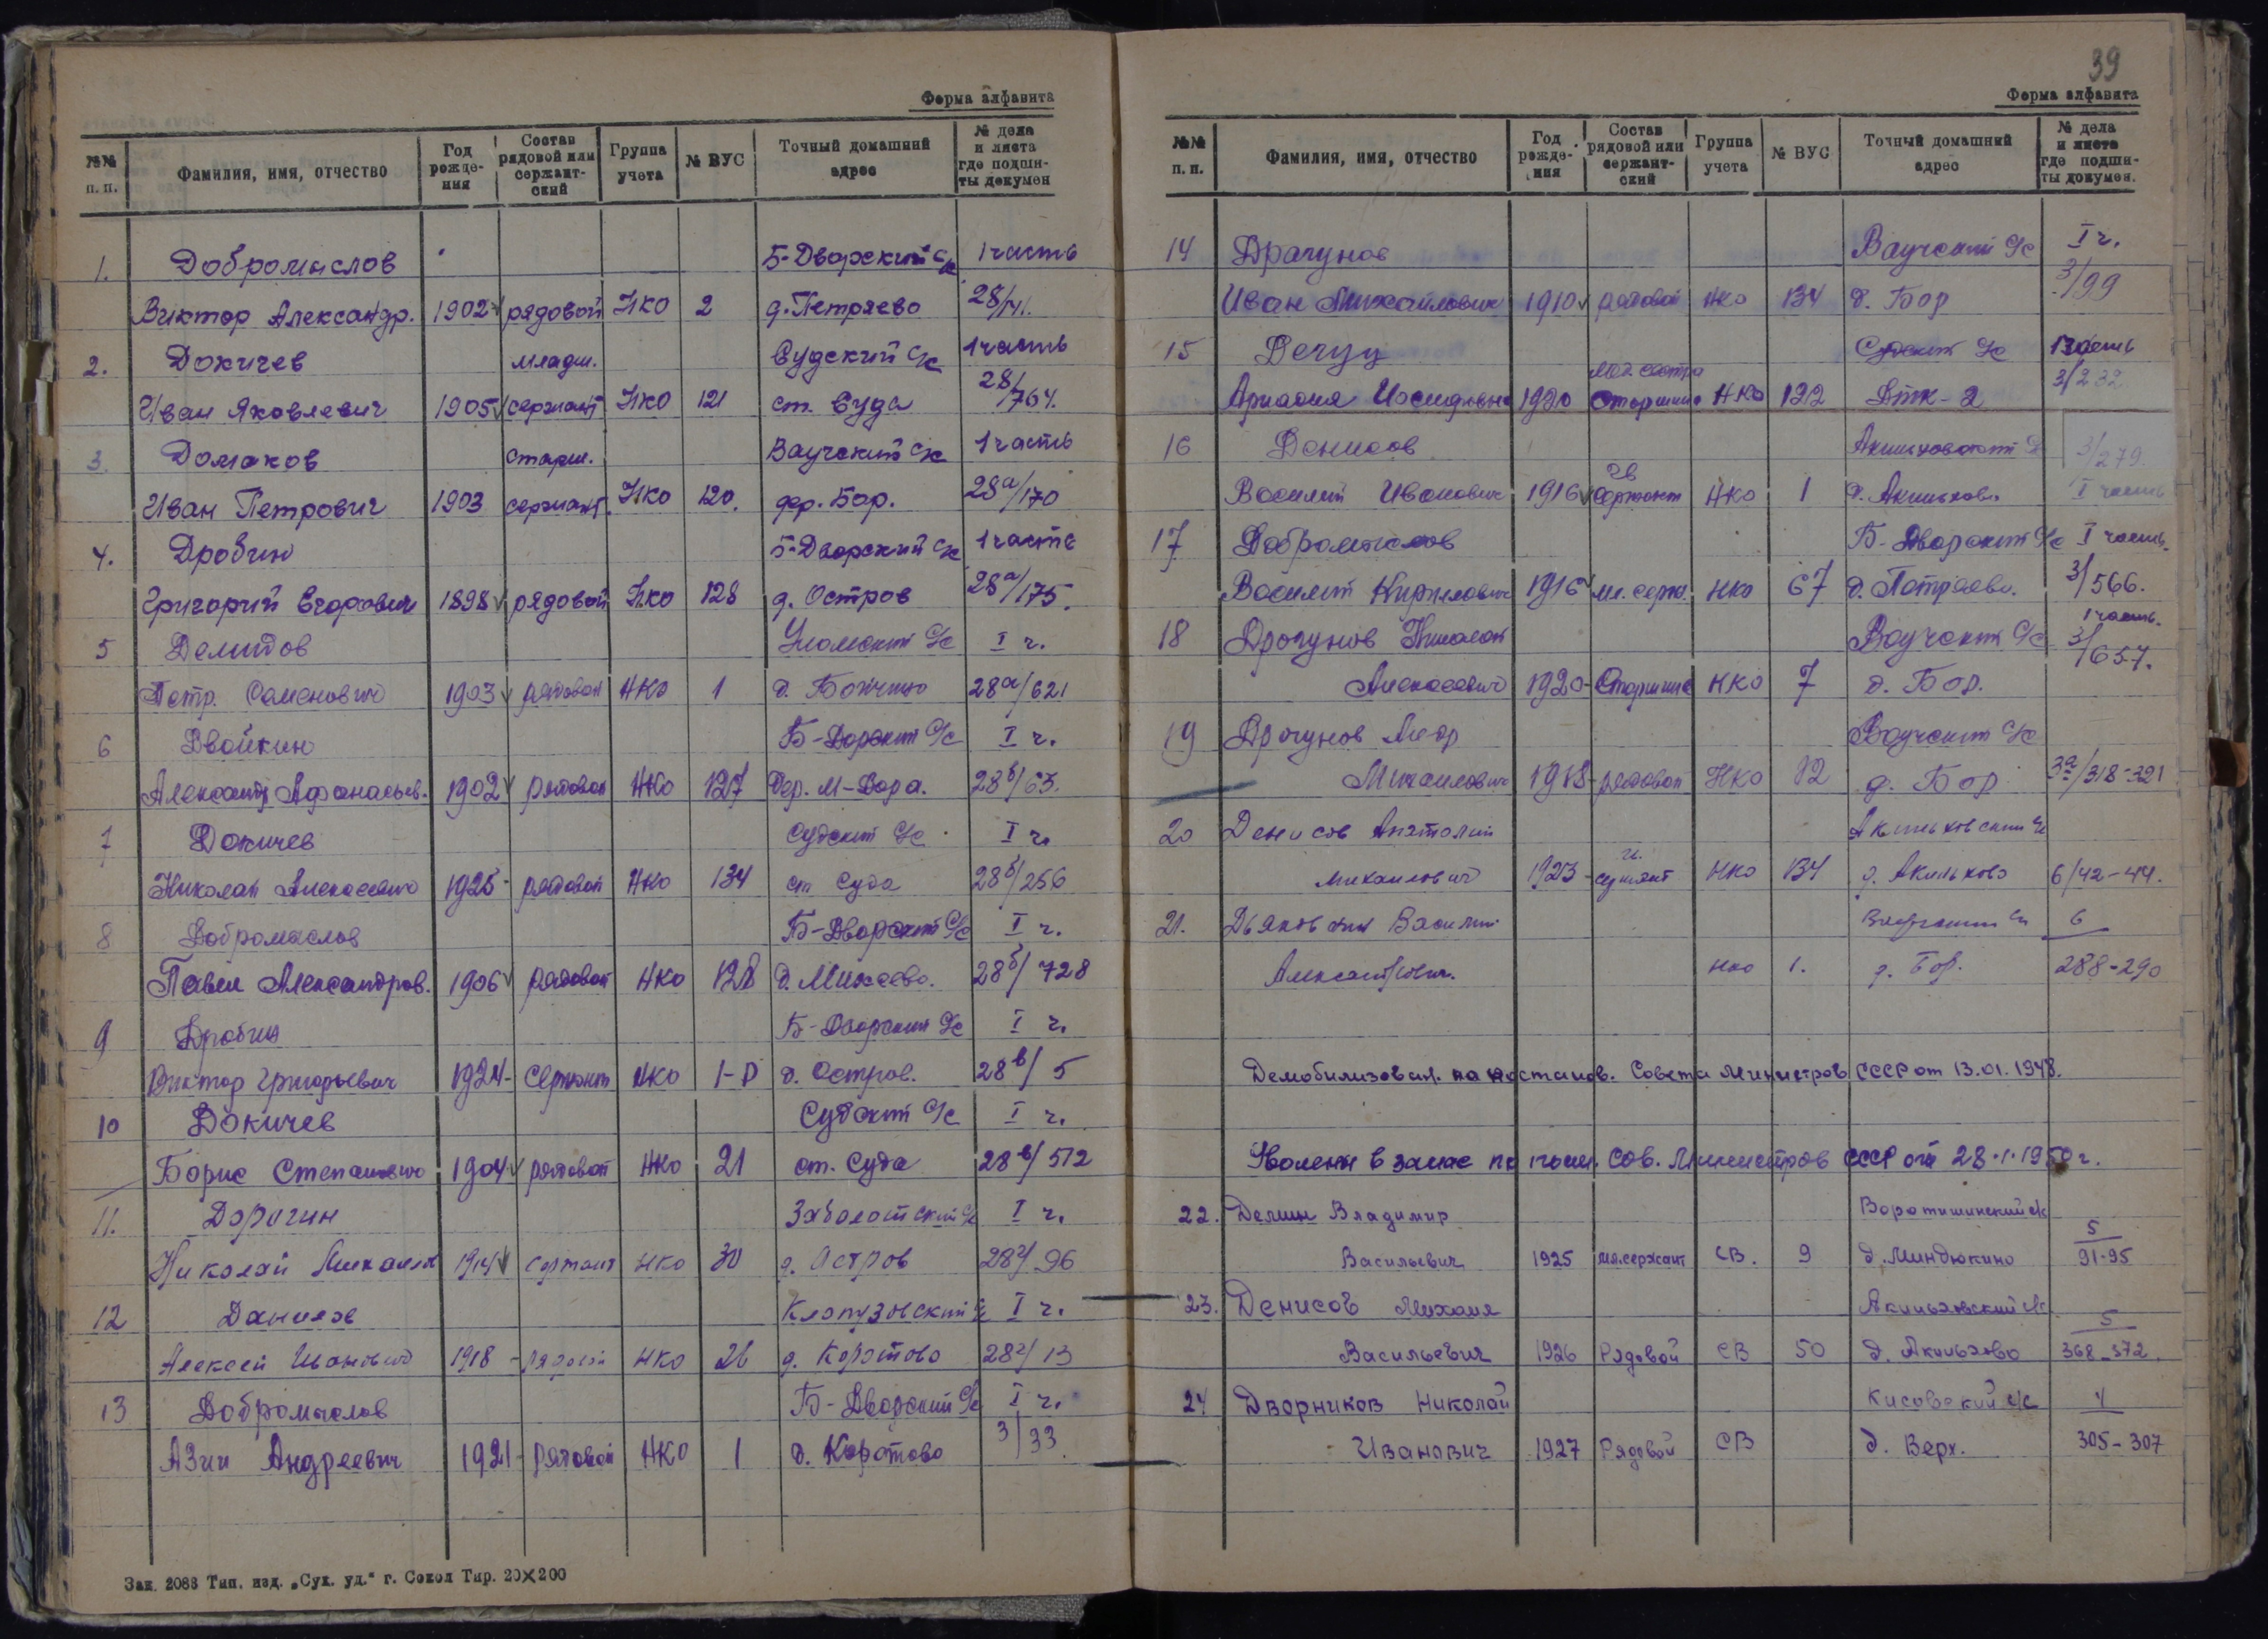 Форма алфавита
№№ п. п. Фамилия, имя, отчество Год рожде-ния Состав рядовой или сержант-ский Группа учета № ВУС Точный домашний адрес № дела и листа где подши-ты докумен
1. Добромыслов Б-Дворский с/с 1 часть
Виктор Александр. 1902 рядовой НКО 2 д. Петряево 28/141.
2. Докичев младш. Судский с/с 1 часть
Иван Яковлевич 1905 сержант НКО 121 ст. Суда 28/764.
3. Домаков старш. Ваучский с/с 1 часть
Иван Петрович 1903 сержант. НКО 120. дер. Бор. 28а/170
4. Дробин Б-Дворский с/с 1 часть
Григорий Егорович 1898 рядовой НКО 128 д. Остров 28а/175.
5 Демидов Уломский с/с I ч.
Петр. Семенович 1903 рядовой НКО 1 д. Божчино 28а/621
6 Двойкин Б-Дорский с/с I ч.
Александр Афанасьев. 1902 рядовой НКО 127 Дер. М-Дора. 28б/63.
7 Докичев Судский с/с I ч.
Николай Алексеевич 1925 - рядовой НКО 134 ст Суда 28б/256
8 Добромыслов Б-Дворский с/с I ч.
Павел Александров. 1906 рядовой НКО 128 д. Михаево. 28б/728
9 Дробин Б-Дворский с/с I ч.
Виктор Григорьевич 1924 - Сержант НКО 1-Р д. Остров. 28в/5
10 Докичев Судский с/с I ч.
Борис Степанович 1904 рядовой НКО 21 ст. Суда 28в/512
11. Дорогин Заболотский с/с I ч.
Николай Михайл 1914 сержант НКО 30 д. Остров 28г/96
12 Данилов Клопузовский с/с I ч.
Алексей Иванович 1918 - рядовой НКО 26 д. Коротово 28г/13
13 Добромыслов Б-Дворский с/с I ч.
Азии Андреевич 1921 - рядовой НКО 1 д. Коротово 3/33.
Зак. 2088 Тип. изд. „Сух. уд.“ г. Сокол Тир. 20×200
39
Форма алфавита
№№ п. п. Фамилия, имя, отчество Год рожде-ния Состав рядовой или сержант-ский Группа учета № ВУС Точный домашний адрес № дела и листа где подши-ты докумен.
14 Драгунов Ваучский с/с I ч.
Иван Михайлович 1910 рядовой НКО 134 д. Бор 3/99
15 Дечуц Судский с/с 1 часть
Иосифовна 1920 Старшина НКО 122 ДТК-2 3/232
16 Денисов Акиньховский с/с 3/279.
Василий Иванович 1916 гв сержант НКО 1 д. Акиньхово I часть
17 Добромыслов Б-Дворский с/с I часть.
Василий Кириллович 1916 мл. серж. НКО 67 д. Петряево. 3/566.
1 часть.
18 Драгунов Николай Ваучский с/с 3/657.
Алексеевич 1920 - Старшина НКО 7 д. Бор.
19 Драгунов Ваучский с/с
Михаилович 1918 - рядовой НКО 12 д. Бор 3а/318-321
20 Денисов Анатолий Акиньховский с/с
Михаилович 1923 - сержант НКО 134 д. Акиньхово 6/42-44.
21. Дьяковский Василий Ваучский с/с 6
Александрович. НКО 1. д. Бор. 288-290
Демобилизован. по постанов. Совета Министров СССР от 13.01.1948.
Уволены в запас по пост. Сов. Министров СССР от 28.1.1950 г.
22. Демин Владимир Воротишинский с/с 5
Васильевич 1925 мл.сержант СВ. 9 д. Миндюкино 91-95
23. Денисов Михаил Акиньховский с/с 5
Васильевич 1926 Рядовой СВ 50 д. Акиньхово 368-372.
24 Дворников Николай Кисовский с/с 4
Иванович 1927 Рядовой СВ д. Верх. 305-307